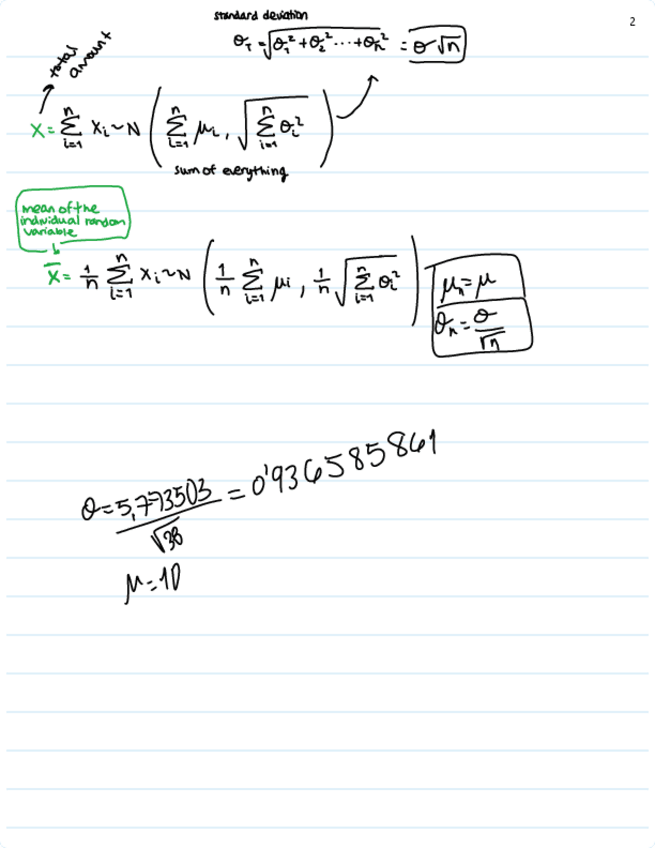 2
standard deviation
θ_T = √(θ₁² + θ₂² ... + θₙ²) = θ√n
total amount
X = Σ_{i=1}^{n} Xᵢ ~ N ( Σ_{i=1}^{n} μᵢ , √(Σ_{i=1}^{n} θᵢ²) )
sum of everything
mean of the
individual random
variable
X̄ = 1/n Σ_{i=1}^{n} Xᵢ ~ N ( 1/n Σ_{i=1}^{n} μᵢ , 1/n √(Σ_{i=1}^{n} θᵢ²) )
μₙ = μ
θₙ = θ/√n
θ = 5,773503/√38 = 0'936585861
μ = 10